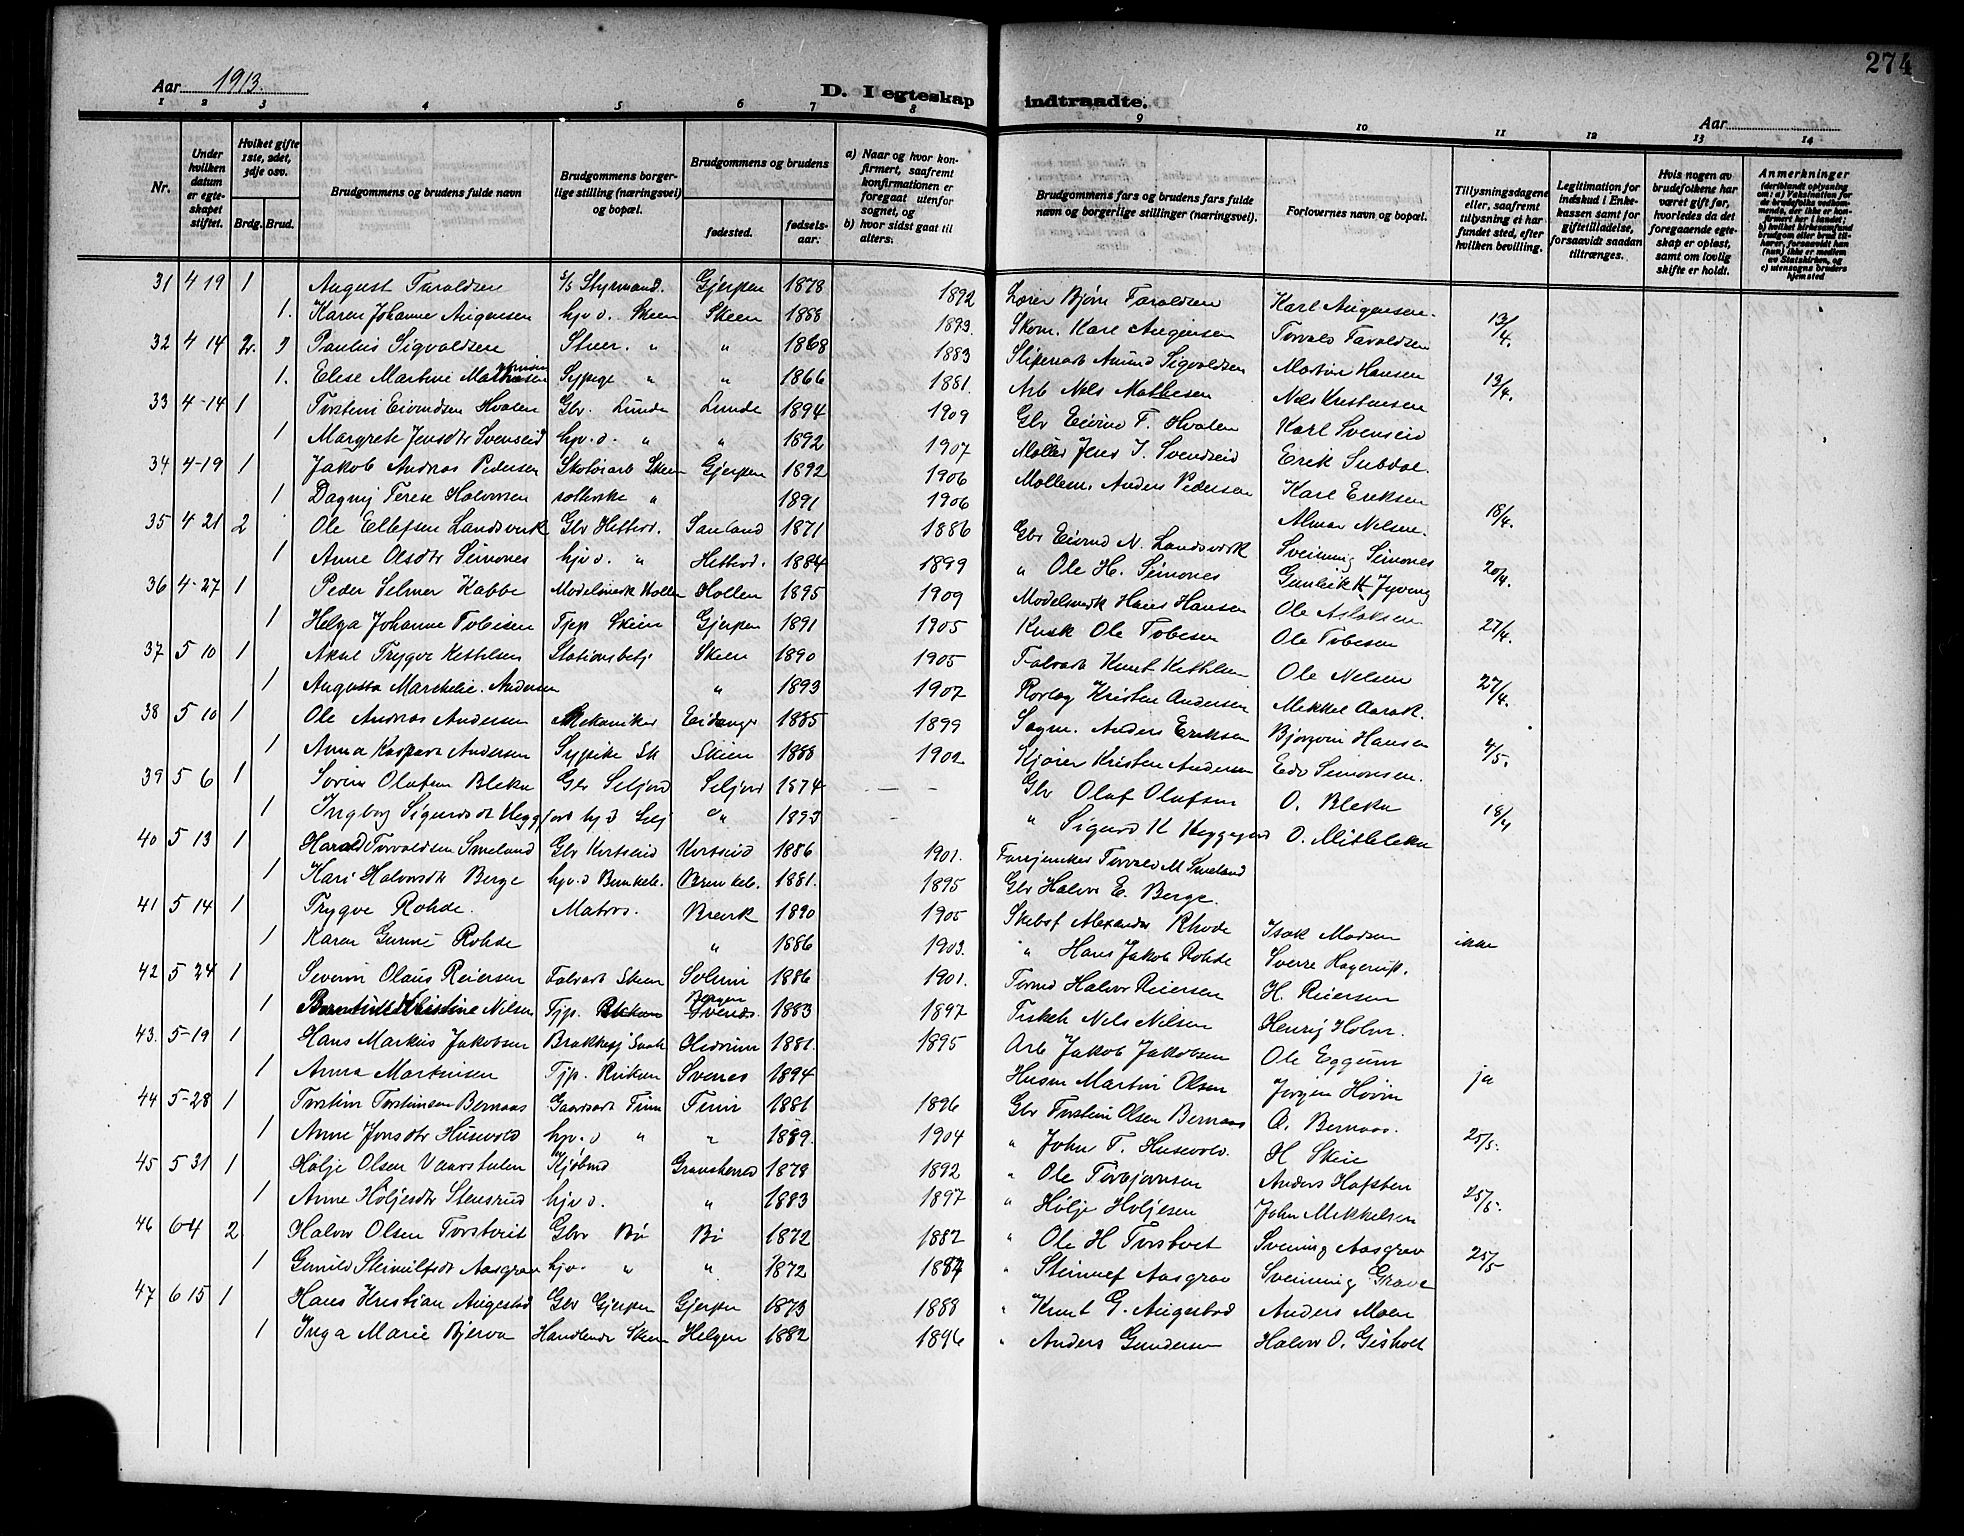 274
Aar 1913.
D. I egteskap indtraadte.
Aar
1 2 3 4 5 6 7 8 9 10 11 12 13 14
Nr.
Under hvilken datum er egteskapet stiftet.
Hvilket gifte 1ste, 2det, 3dje osv.
Brdg. Brud.
Brudgommens og brudens fulde navn
Brudgommens borgerlige stilling (næringsvei) og bopæl.
Brudgommens og brudens
fødested.
fødselsaar.
a) Naar og hvor konfirmert, saafremt konfirmationen er foregaat utenfor sognet, og
b) hvor sidst gaat til alters.
Brudgommens fars og brudens fars fulde navn og borgerlige stillinger (næringsvei).
Forlovernes navn og bopæl.
Tillysningsdagene eller, saafremt tillysning ei har fundet sted, efter hvilken bevilling.
Legitimation for indskud i Enkekassen samt for giftetilladelse, forsaavidt saadan tiltrænges.
Hvis nogen av brudefolkene har været gift før, hvorledes da det foregaaende egteskap er opløst, samt om lovlig skifte er holdt.
Anmerkninger
31 4 19 1 August Taraldsen Styrmand. Gjerpen 1878 1892 Bjørn Taraldsen Karl Augensen
1. Karen Johanne Augensen hjv d. Skeen Skeen 1888 1893. Skom. Karl Augensen Torvald Taraldsen 13/4.
32 4 14 Paulus Sigvaldsen " " 1868 1883 Amund Sigvaldsen Martin Hansen
1. Elise Martine Sypige " " 1866 1881. Arb Nels Mathesen Nels Kristensen 13/4.
33 4-14 1 Torstein Eivindsen Hvalen Gbr. Lunde Lunde 1894 1909 Gbr Eivind T. Hvalen Karl Svenseid
1 Margrete Jensdtr Svenseid hjv. d. " " 1892 1907 Møller Jens J. Svendseid Erik Subdal.
34 4-19 1 Jakob Andreas Pedersen Skotøiarb Skeen Gjerpen 1892 1906 Møllem. Anders Pedersen Karl Eriksen
1 Dagny Terese Halvorsen " 1891 1906 Almar Nilsen. 18/4.
35 4 21 2 Ole Ellefsen Landsverk Gbr Hitterd. Sauland 1871 1886 Gbr Eivind N. Landsverk Sveinung Seimones
1 Anne Olsdtr Seimones hjv d. " Hitterd. 1884 1899 " Ole H. Seimones Gunleik H. 20/4.
36 4-27 1 Peder Selmer Kabbe Modelsnedk Hollen Hollen 1895 1909 Modelsnedk Hans Hansen Ole Aslaksen
1 Helga Johanne Tobisen Tjp Skien Gjerpen 1891 1905 Kusk Ole Tobesen Ole Tobesen 27/4.
37 5 10 1 Aksel Trygve Kethilsen Stationsbetj Skeen 1890 1905 Knut Kethilsen Ole Nelsen
1 Augusta Andersen " 1893 1907 Kristen Andersen Mekkel Aarak. 27/4.
38 5 10 1 Ole Andreas Andersen Mekaniker Eidanger 1885 1899 Sagm. Anders Eriksen Bjørgvin Hansen
1 Anna Kaspara Andersen Sypike Sk Skien 1888 1902 Kjører Kristen Andersen Edv Simonsen. 4/5.
39 5 6 1 Olafsen Bleka Gbr Seljord Seljord 1874 — - Gbr Olaf Olafsen O. Bleka
1 Ingborg Sigurdsdt Heggjord hj d Selj " 1893 " Sigurd K Heggjord O. Mitbleka 18/4
40 5 13 1 Harald Torvaldsen Smeland Gbr Kvitseid Kvitseid 1886 1901. Torvald M Smeland
1 Kari Halvorsdtr Berge hjv. d Brunkeb. Brunkeb. 1881. 1895 Gbr Halvor E. Berge.
41 5 14 1 Trygve Rohde. Matros. Brevik 1890 1905 Skibsf Alexander Rhode Isak Madsen
1 Karen Gurine Rohde " 1886 1903. " Hans Jakob Rohde Sverre Hagerup. ikke
42 5 24 1 Severin Olaus Reiersen Skeen Solum 1886 1901. Halvor Reiersen H. Reiersen
1 Kristine Nilsen Tjp. 1883 1897 Nels Nelsen Henrij Holm.
43. 5-19 1 Hans Markus Jakobsen 1881. 1895 Arb Jakob Jakobsen Ole Eggum
1 Anna Martinsen Tjp. Svenes 1894 Husm Martin Olsen Jørgen Høvin ja
44 5-28 1 Torstein Torsteinsen Bernaas Gaardarb Tinn Tinn 1881 1896 Gbr Torstein Olsen Bernaas O. Bernaas.
1 Anne Jonsdtr Husevold hjv. d " " 1889. 1904 " John T. Husevold. H Skeie 25/5.
45 5 31 1 Hølje Olsen Vaarstulen Gransherred 1878 1892 " Ole Torbjørnsen Anders Hafsten
1 Anne Høljesdtr Stensrud hjv d. " 1883 1897 " Hølje Høljesen John Mikkelsen 25/5.
46 6 4 2 Halvor Olsen Torstveit Gbr Bø Bø 1872 1887 " Ole H Torstveit Sveinung Aasgrav
1 Gunild Steinulfsdt Aasgrav hjv. " " 1872 1887 " Steinulf Aasgrav Sveinung Grave 25/5
47 6 15 1 Hans Kristian Augestad Gbr Gjerpen Gjerpen 1873 1888 " Knut G. Augestad Anders Moen
1 Inga Marie Bjerva Handlende Skeen Helgen 1882 1896 " Anders Gundersen Halvor O. Gisholt